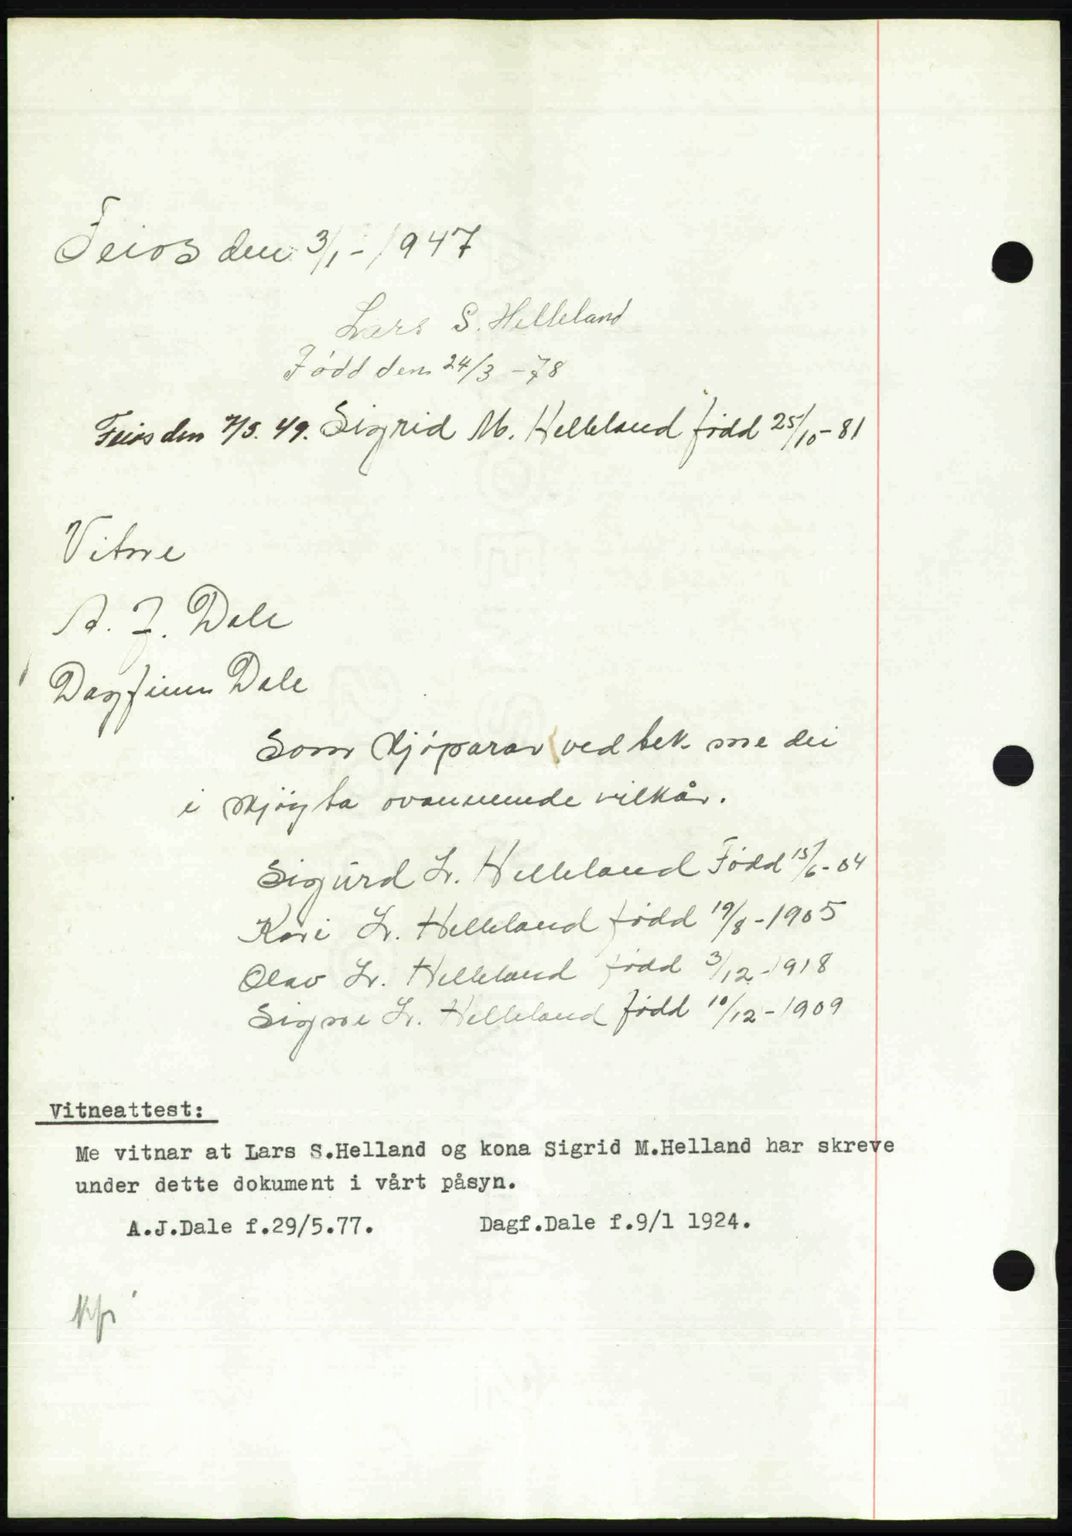 Feios den 3/1 - 1947
Lars S. Helleland
Född den 24/3 - 78
Feios den 7/5. 49. Sigrid M. Helleland född 25/10 - 81
Vitne
A. J. Dale
Dagfinn Dale
Som kjöparar vedtek me dei
i skjöyta ovannemnde vilkår.
Sigurd L. Helleland Född 15/6 - 04
Kari L. Helleland född 19/8 - 1905
Olav L. Helleland född 3/12 - 1918
Signe L. Helleland född 10/12 - 1909
Vitneattest:
Me vitnar at Lars S.Helland og kona Sigrid M.Helland har skreve
under dette dokument i vårt påsyn.
A.J.Dale f.29/5.77. Dagf.Dale f.9/1 1924.